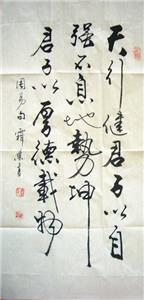 天行健君子以自
强不息地勢坤
君子以厚德載物
周易句